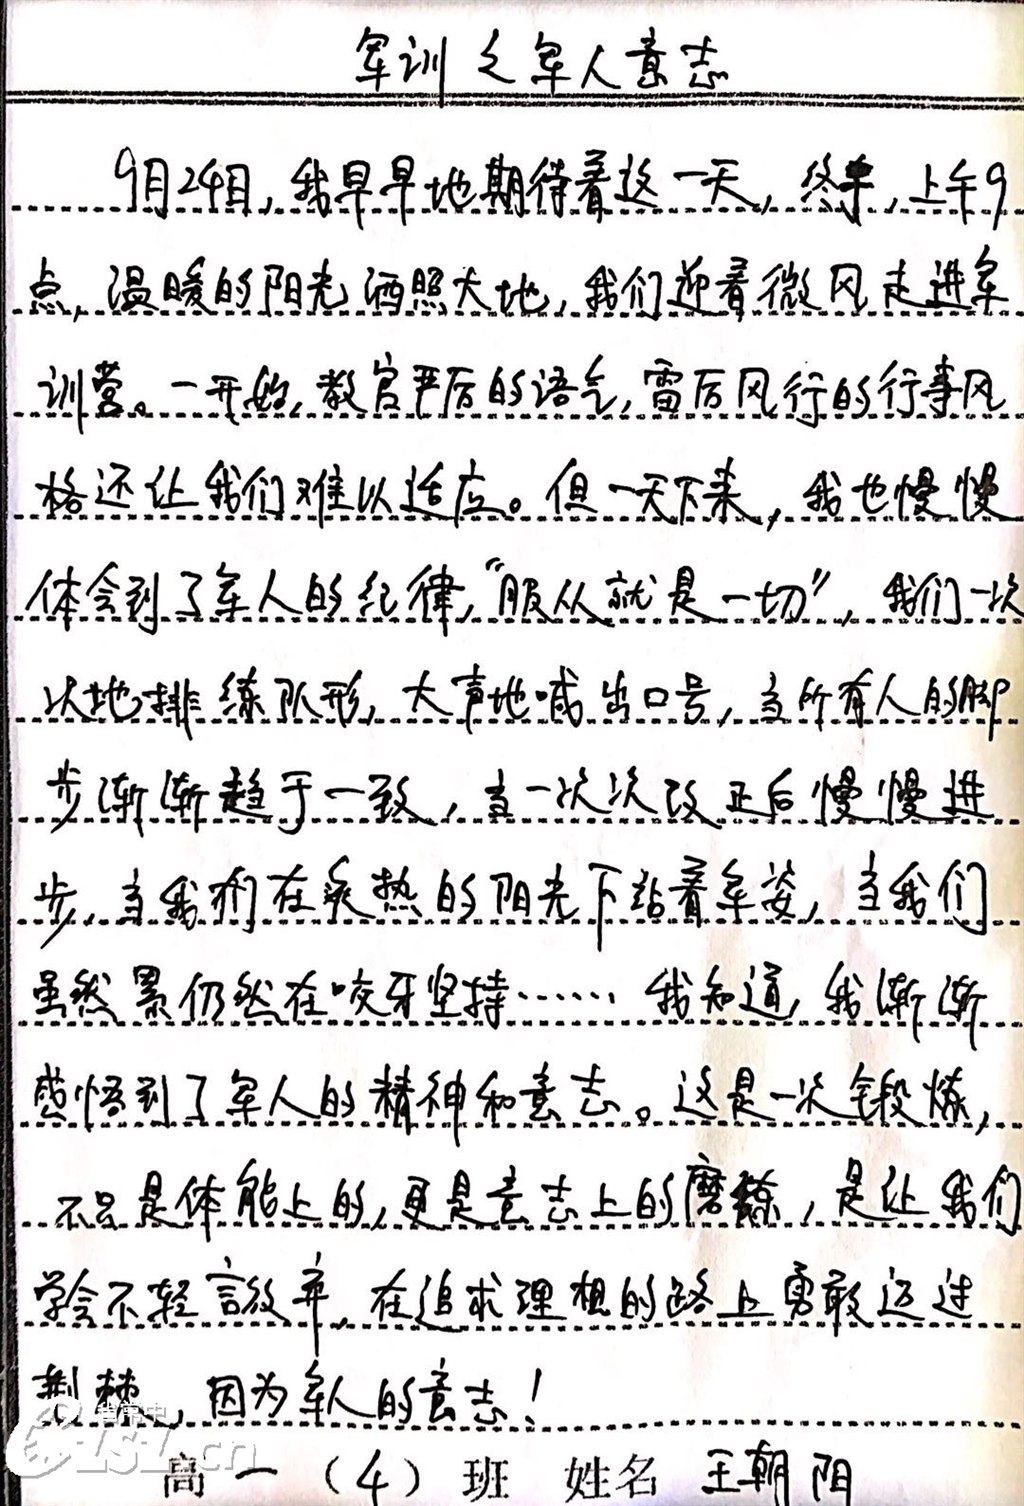 军训之军人意志
9月24日,我早早地期待着这一天,终于,上午9
点,温暖的阳光洒照大地,我们迎着微风走进军
训营。一开始,教官严厉的语气,雷厉风行的行事风
格还让我们难以适应。但一天下来,我也慢慢
体会到了军人的纪律,“服从就是一切”,我们一次
次地排练队形,大声地喊出口号,当所有人的脚
步渐渐趋于一致,当一次次改正后慢慢进
步,当我们在炎热的阳光下站着军姿,当我们
虽然累仍然在咬牙坚持……我知道,我渐渐
感悟到了军人的精神和意志。这是一次锻炼,
不只是体能上的,更是意志上的磨练,是让我们
学会不轻言放弃,在追求理想的路上勇敢迈过
荆棘,因为军人的意志!
高一(4)班 姓名 王朝阳